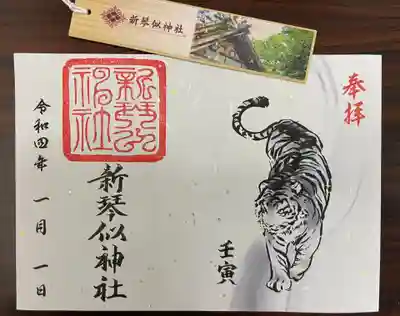 新琴似神社
奉拝
壬寅
新琴似神社
新琴似神社
令和四年 一月 一日